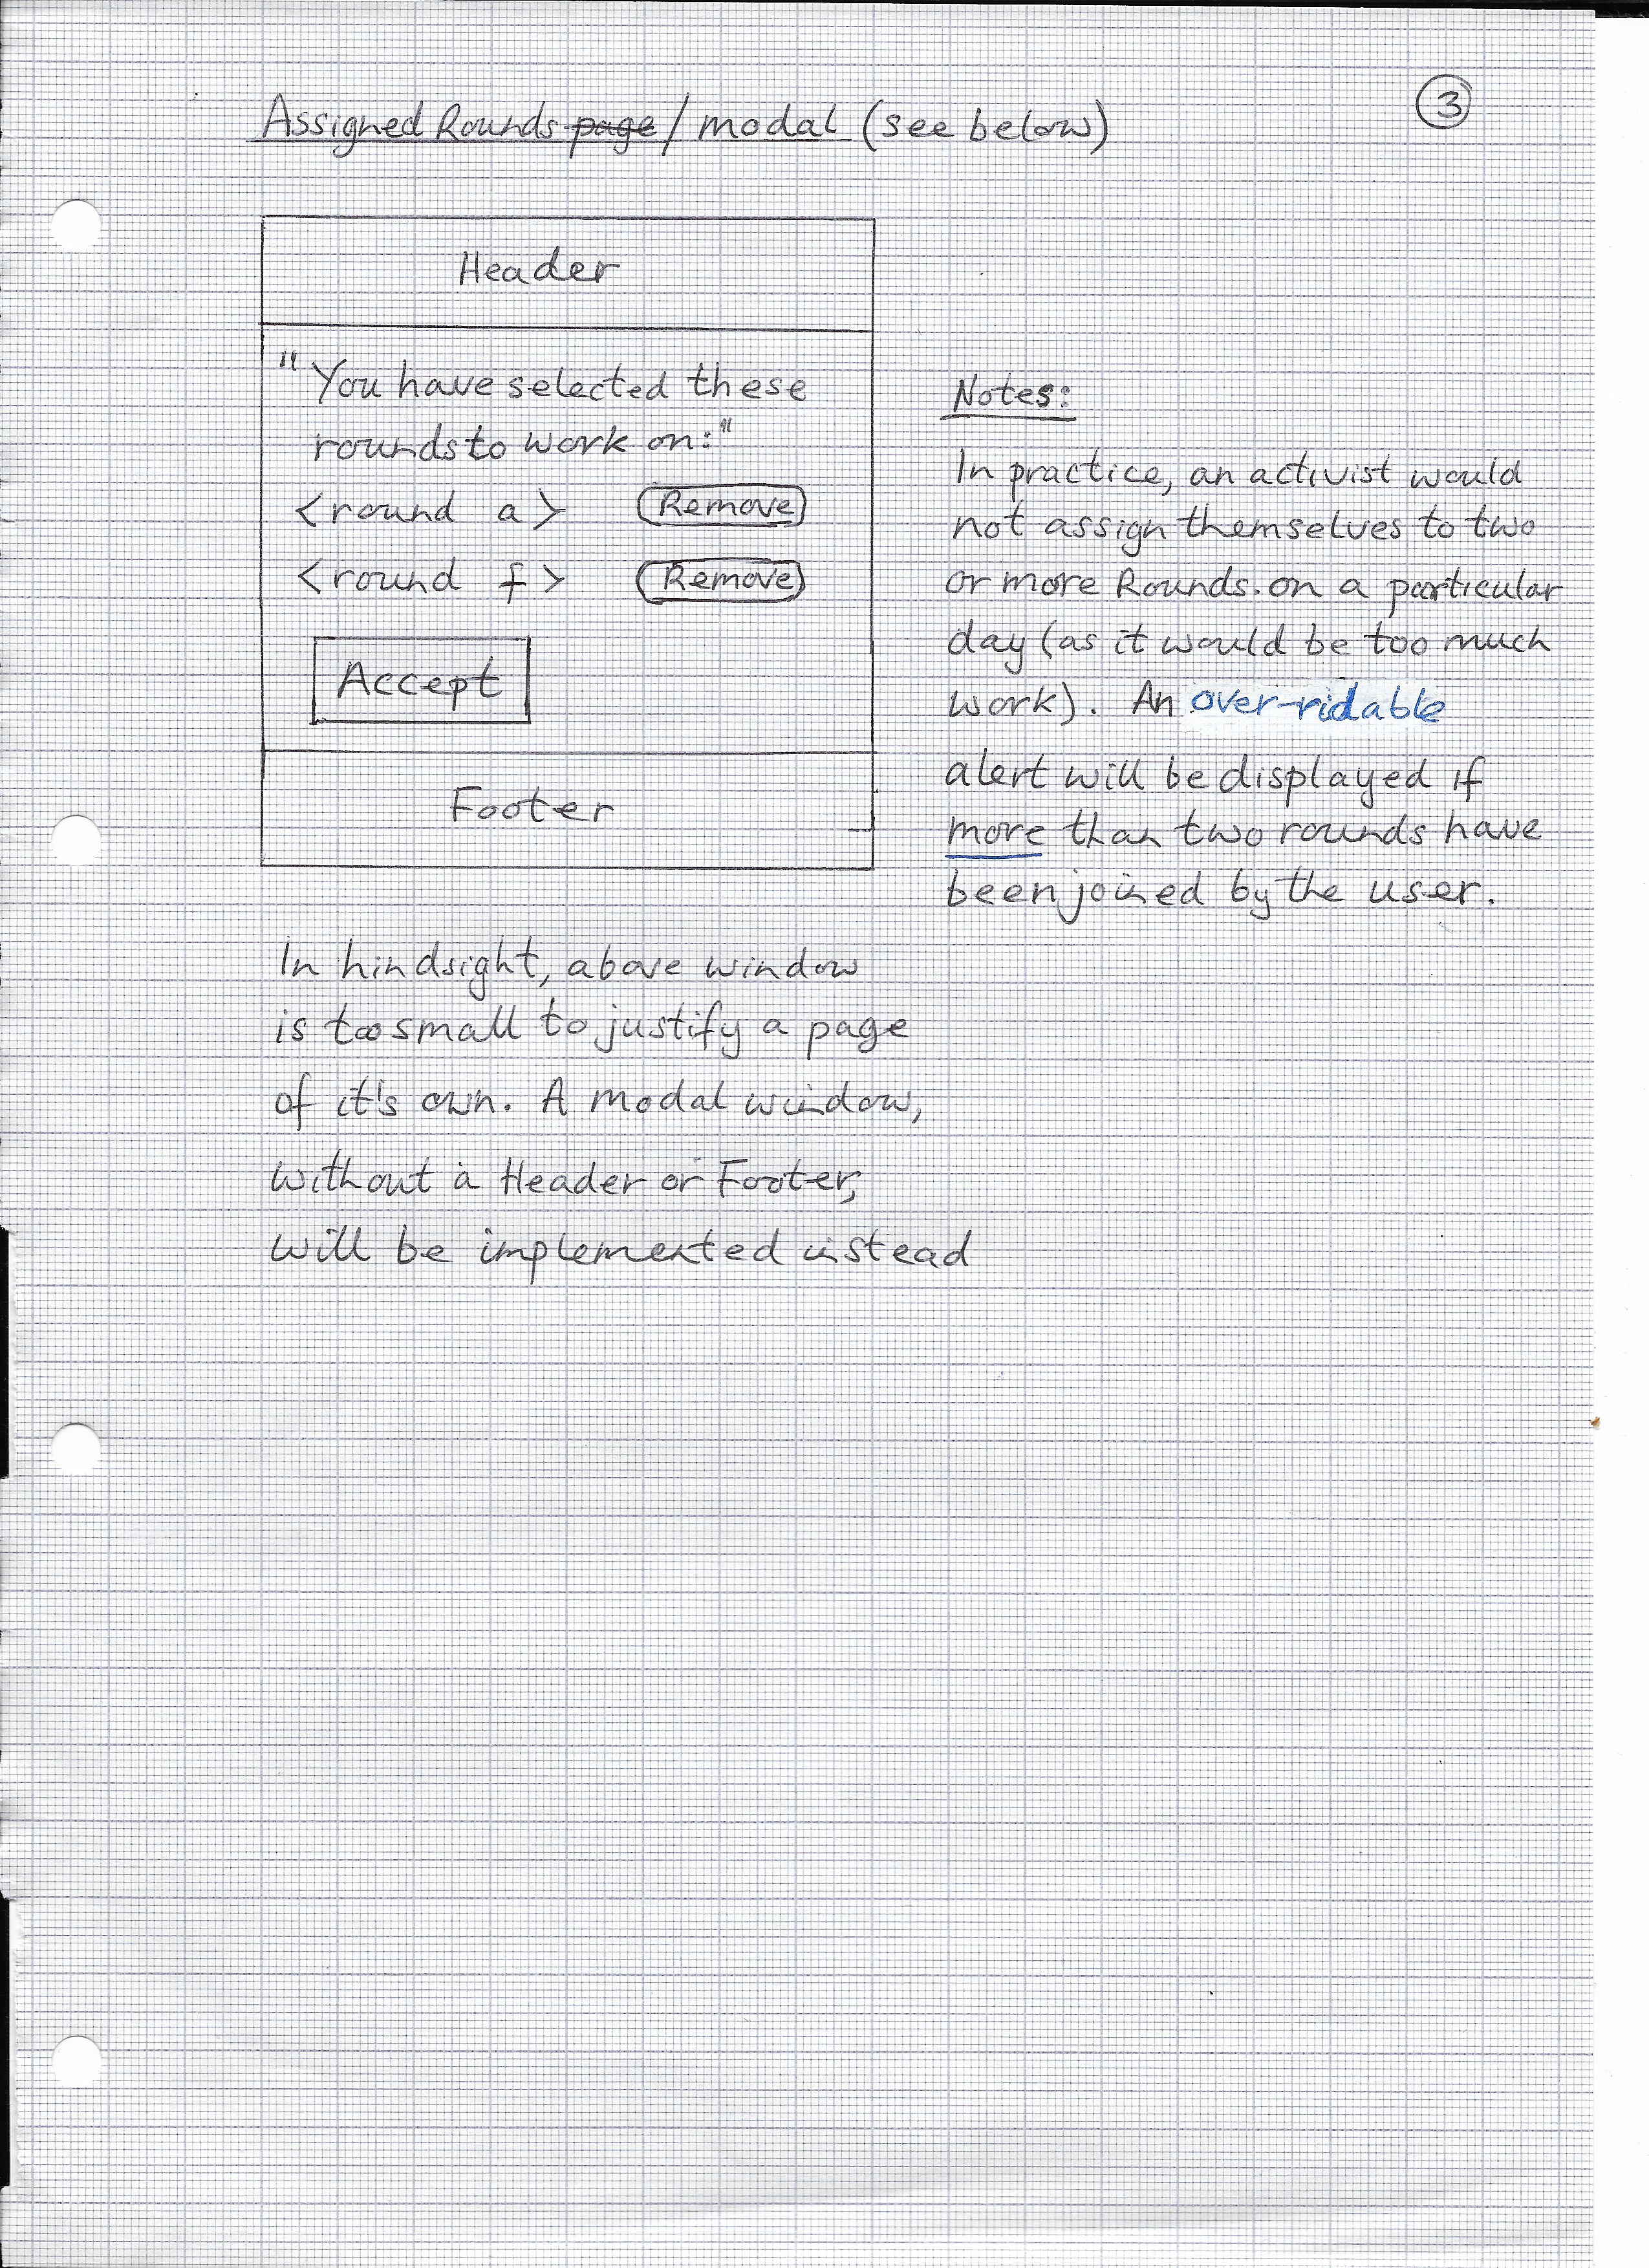 Assigned Rounds page / modal (see below)
3
Header
"You have selected these
rounds to work on:"
<round a> Remove
<round f> Remove
Accept
Footer
Notes:
In practice, an activist would
not assign themselves to two
or more Rounds. on a particular
day (as it would be too much
work). An over-ridable
alert will be displayed if
more than two rounds have
been joined by the user.
In hindsight, above window
is too small to justify a page
of it's own. A modal window,
without a Header or Footer,
will be implemented instead